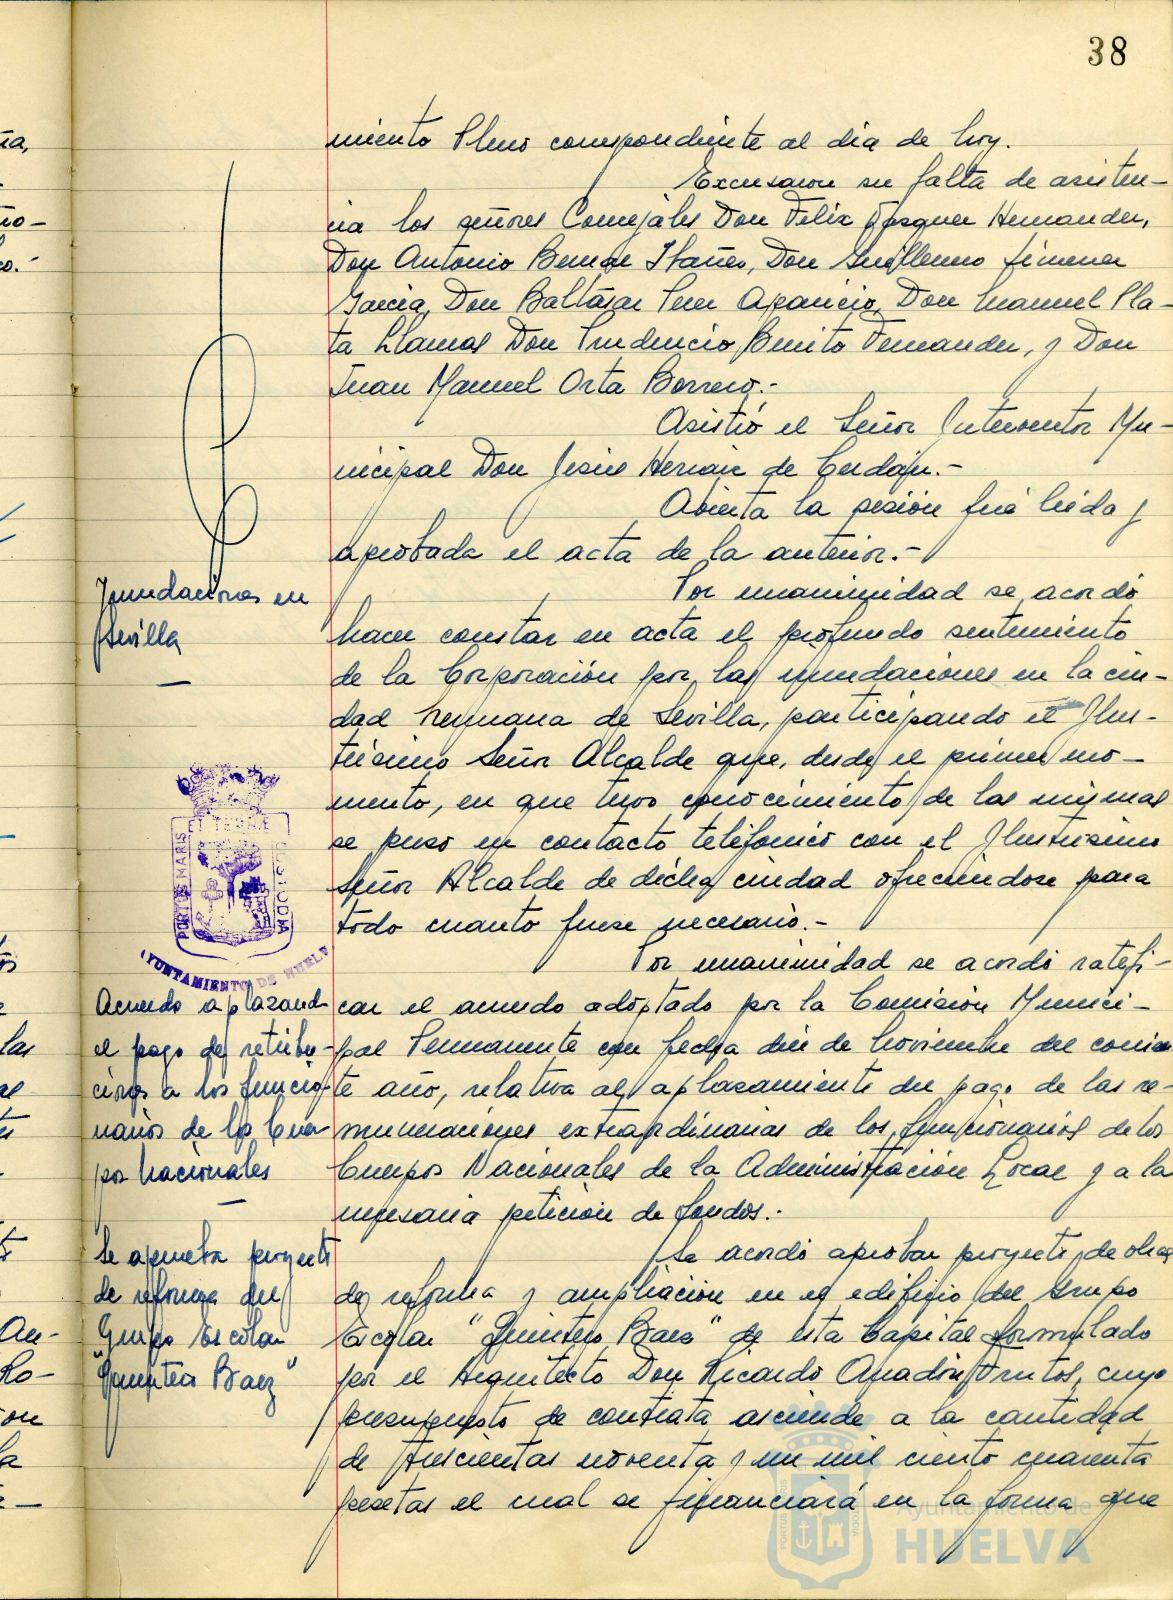 38
miento Pleno correspondiente al dia de hoy.
Excusaron su falta de asisten-
cia los señores Concejales Don Felix Vazquez Hernandez,
Don Antonio Bernal Ibañez, Don Guillermo Jimenez
Garcia, Don Baltasar Perez Aparicio, Don Manuel Pla-
ta Llamas Don Prudencio Benito Fernandez, y Don
Juan Manuel Orta Borrero.-
Asistió el Señor Interventor Mu-
nicipal Don Jesús Hernaiz de Cerdán.-
Abierta la sesión fué leida y
aprobada el acta de la anterior.-
Inundaciones en
Sevilla
Por unanimidad se acordó
hacer constar en acta el profundo sentimiento
de la Corporación por las inundaciones en la ciu-
dad hermana de Sevilla, participando el Ilus-
trisimo Señor Alcalde que, desde el primer mo-
mento, en que tuvo conocimiento de las mismas
se puso en contacto telefonico con el Ilustrisimo
Señor Alcalde de dicha ciudad ofreciendose para
todo cuanto fuese necesario.-
PORTUS MARIS ET TERRAE CUSTODIA
AYUNTAMIENTO DE HUELVA
Acuerdo aplazand
el pago de retribu-
ciones a los funcio-
narios de los Cuer
pos Nacionales
Por unanimidad se acordó ratifi-
car el acuerdo adoptado por la Comisión Munici-
pal Permanente con fecha diez de Noviembre del corrien
te año, relativa al aplazamiento del pago de las re-
muneraciones extraordinarias de los funcionarios de los
Cuerpos Nacionales de la Administración Local y a la
necesaria petición de fondos.-
Se aprueba proyecto
de reforma del
Grupo Escolar
"Quintero Baez"
Se acordó aprobar proyecto de obras
de reforma y ampliación en el edificio del Grupo
Escolar "Quintero Baez" de esta Capital formulado
por el Arquitecto Don Ricardo Anadón Frutos, cuyo
presupuesto de contrata asciende a la cantidad
de trescientas noventa y un mil ciento cuarenta
pesetas el cual se financiará en la forma que
Ayuntamiento de
HUELVA